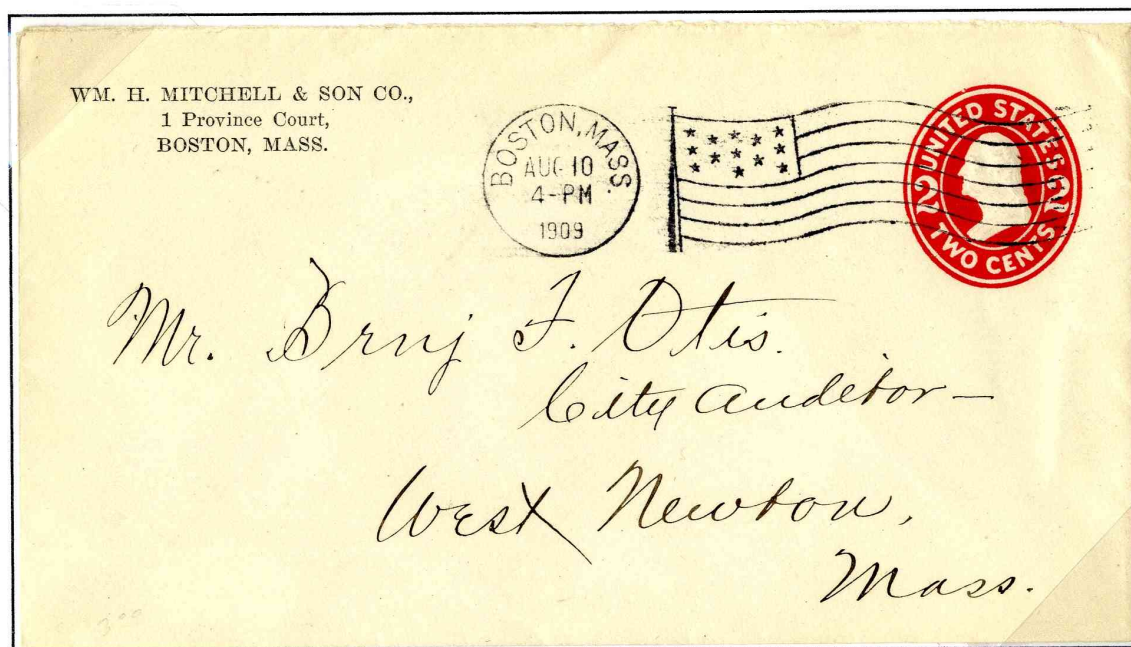 WM. H. MITCHELL & SON CO.,
1 Province Court,
BOSTON, MASS.
BOSTON, MASS.
AUG 10
4-PM
1909
UNITED STATES
2 2
TWO CENTS
Mr. Benj F. Otis.
City Auditor—
West Newton,
Mass.
3.00